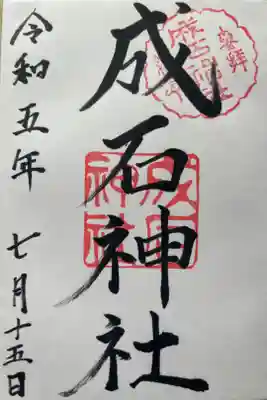 奉拝
成石神社
成石神社
令和五年 七月十五日